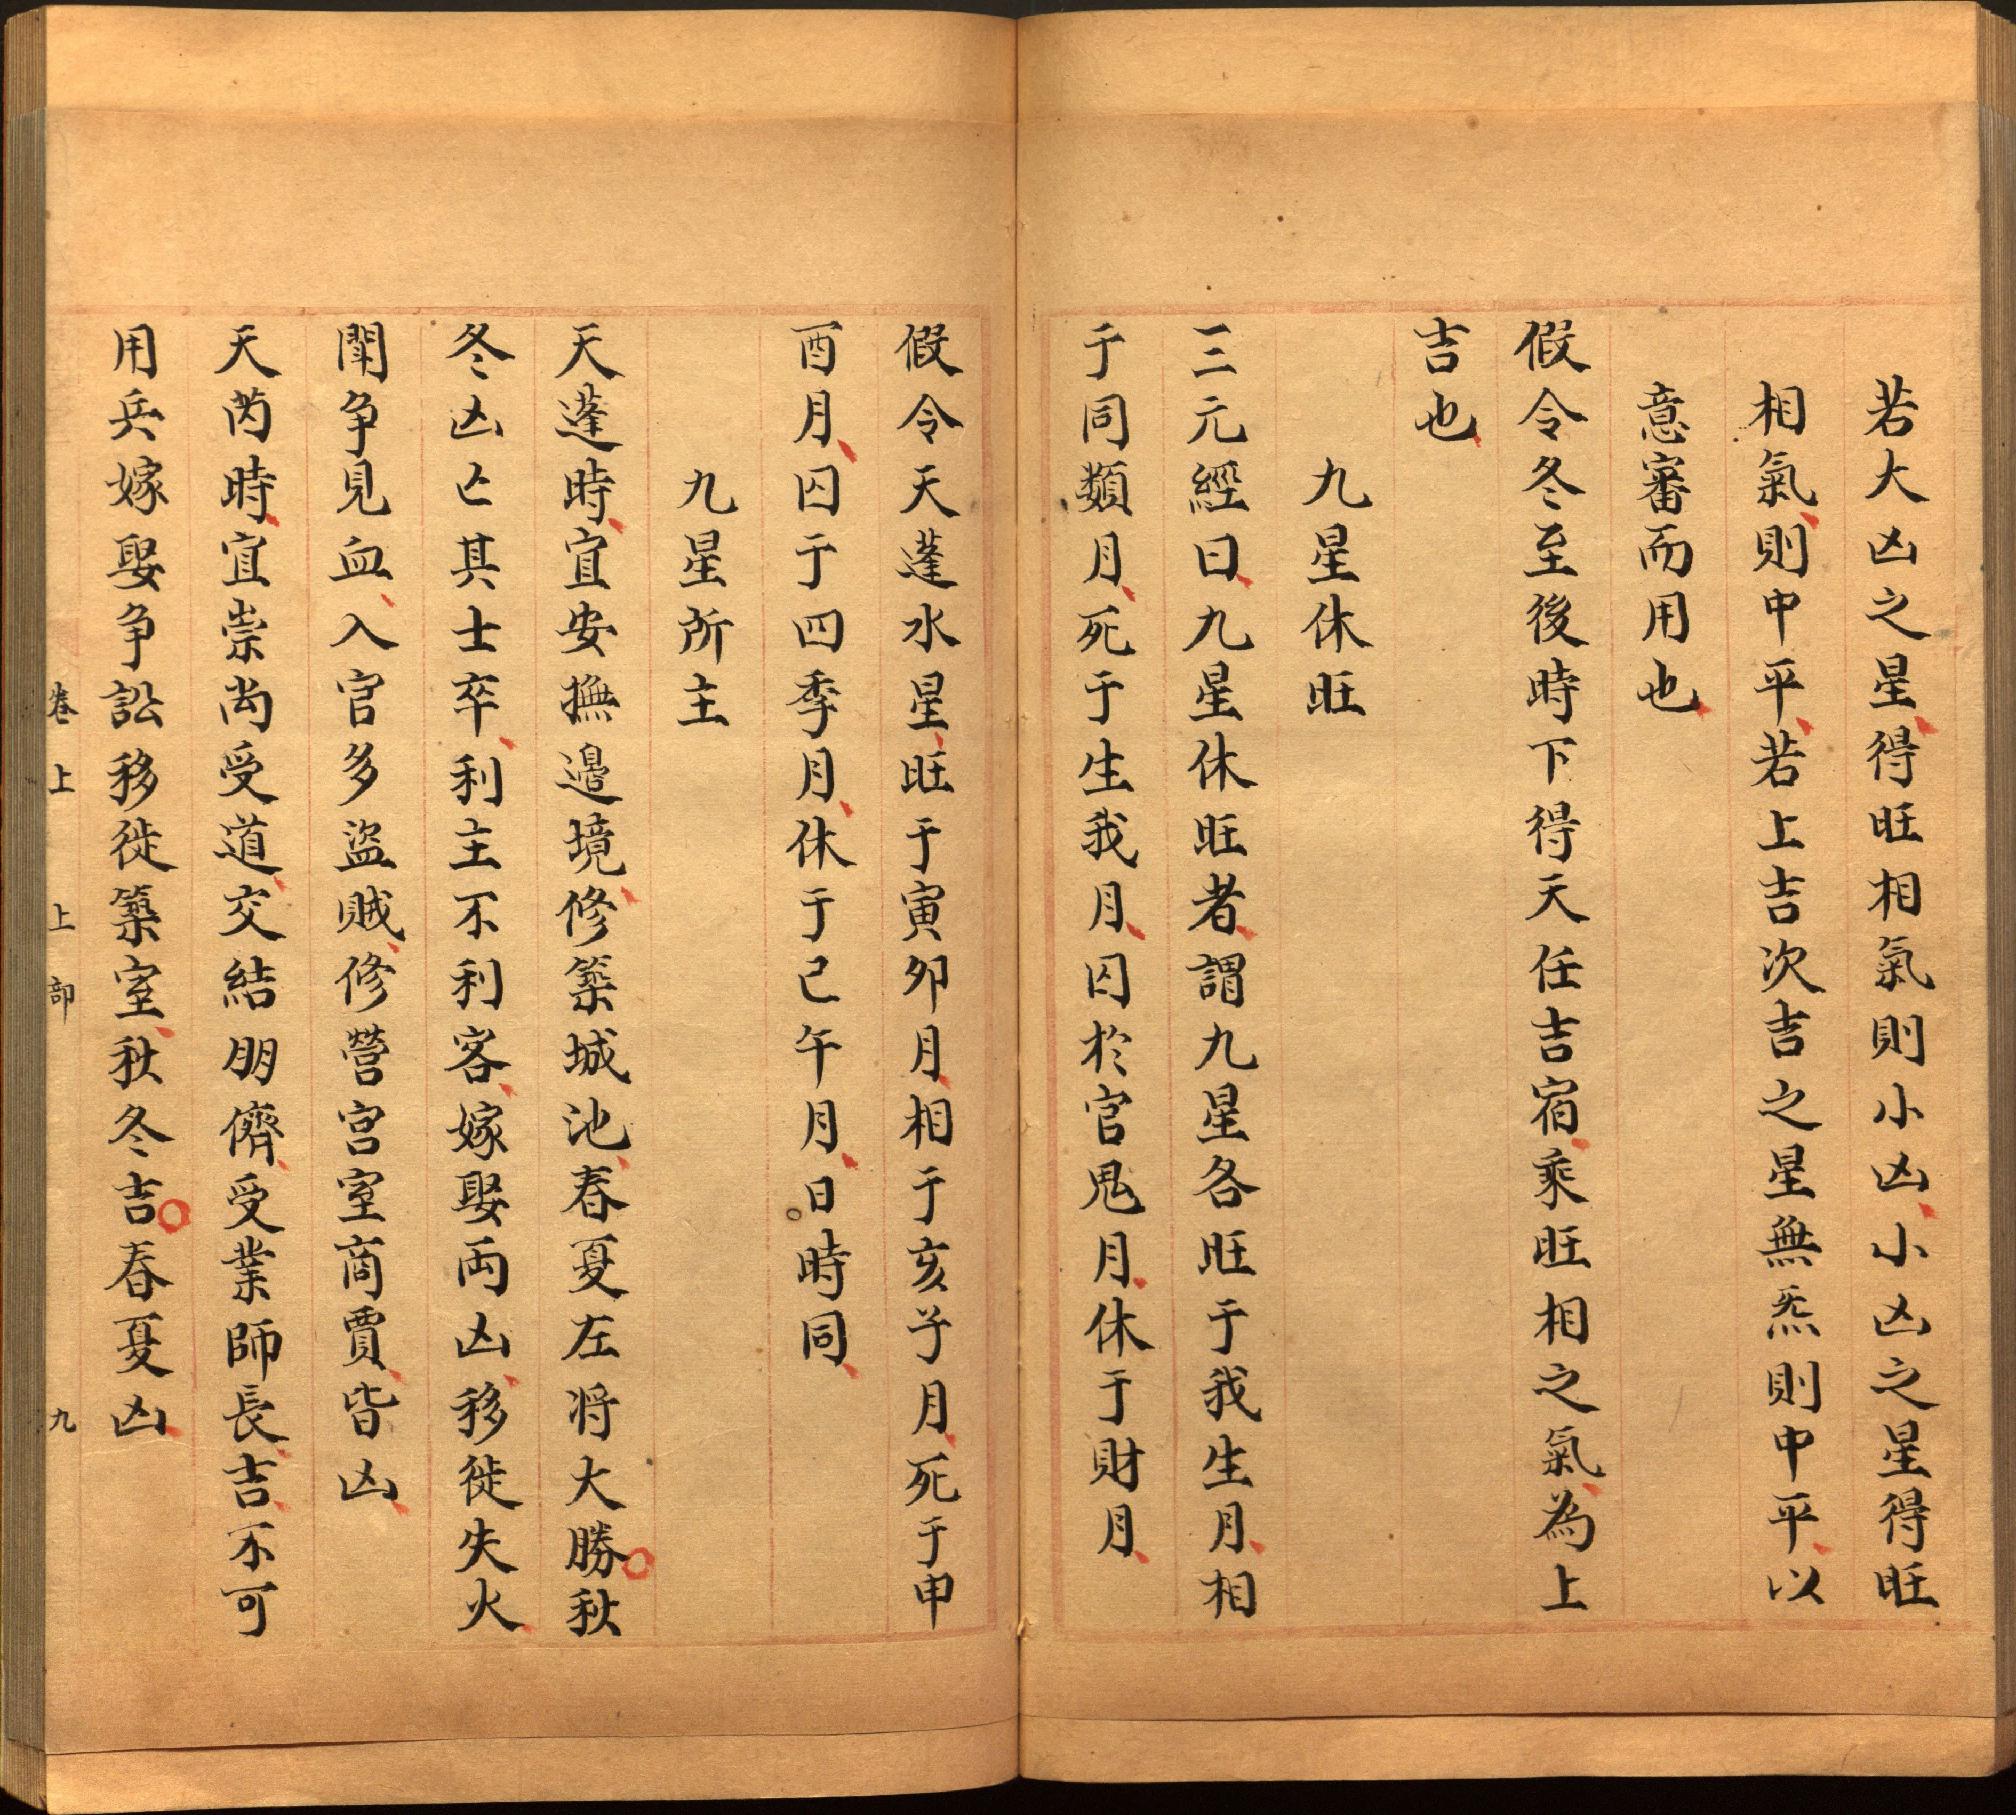 若大凶之星得旺相氣則小凶小凶之星得旺
相氣則中平若上吉次吉之星無炁則中平以
意審而用也
假令冬至後時下得天任吉宿乘旺相之氣為上
吉也
九星休旺
三元經曰九星休旺者謂九星各旺于我生月相
于同類月死于生我月囚於官鬼月休于財月
假令天蓬水星旺于寅卯月相于亥子月死于申
酉月囚于四季月休于己午月日時同
九星所主
天蓬時宜安撫邊境修築城池春夏左将大勝秋
冬凶亡其士卒利主不利客嫁娶両凶移徙失火
鬪争見血入官多盜賊修營宮室商賈皆凶
天芮時宜崇尚受道交結朋儕受業師長吉不可
用兵嫁娶争訟移徙築室秋冬吉春夏凶
卷上 上部 九